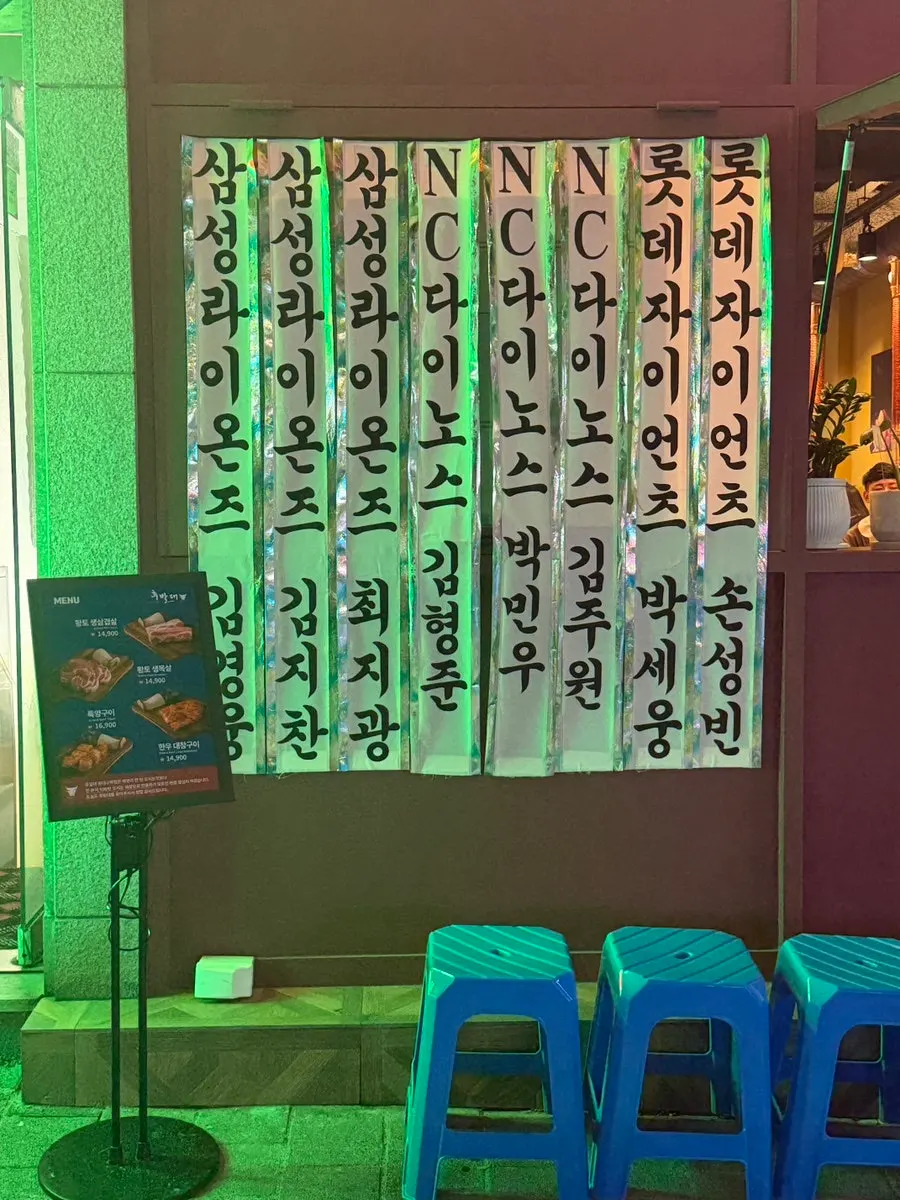 삼성라이온즈 김영웅
삼성라이온즈 김지찬
삼성라이온즈 최지광
NC다이노스 김형준
NC다이노스 박민우
NC다이노스 김주원
롯데자이언츠 박세웅
롯데자이언츠 손성빈
MENU
황토 생삼겹살
₩ 14,900
황토 생목살
₩ 14,900
특양구이
₩ 16,900
한우 대창구이
₩ 14,900